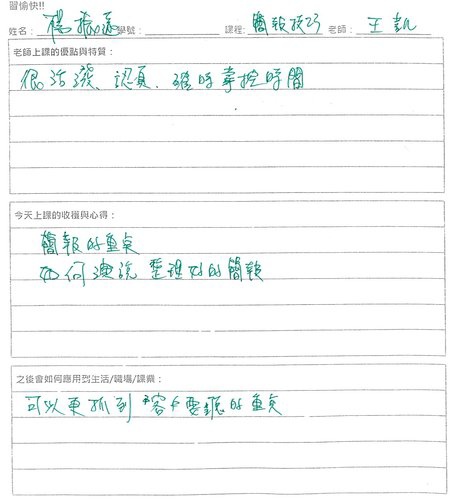 習愉快!!
姓名： 楊振遠 學號： 課程： 簡報技巧 老師： 王凱
老師上課的優點與特質：
很活潑、認真、確時掌控時間
今天上課的收穫與心得：
簡報的重點
如何演說整理好的簡報
之後會如何應用到生活/職場/課業：
可以更抓到客戶要聽的重點